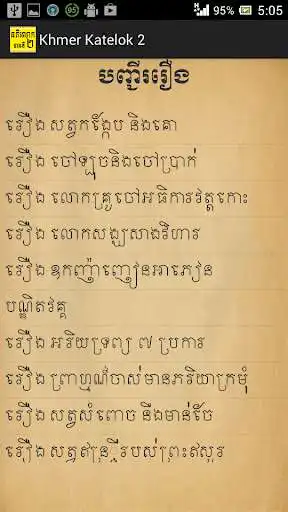 5:05
គតិលោក
ភាគទី
២
Khmer Katelok 2
បញ្ជីររឿង
រឿង សត្វកង្កែប និងគោ
រឿង ចៅឡុចនិងចៅប្រាក់
រឿង លោកគ្រូចៅអធិការវត្តកោះ
រឿង លោកសង្ឃសាងវិហារ
រឿង ឧកញ៉ាញៀនអាភៀន
បណ្ឌិតវគ្គ
រឿង អរិយទ្រព្យ ៧ ប្រការ
រឿង ព្រាហ្មណ៍ចាស់មានភរិយាក្រមុំ
រឿង សត្វសំពោច នឹងមាន់ចែ
រឿង សត្វឥន្ទ្រីរបស់ព្រះឥសូរ